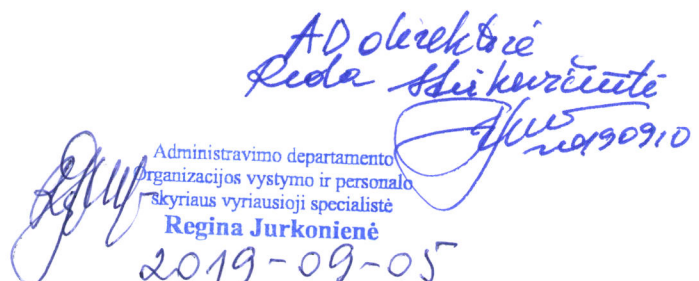 AD direktorė
Reda
20190910
Administravimo departamento
Organizacijos vystymo ir personalo
skyriaus vyriausioji specialistė
Regina Jurkonienė
2019-09-05